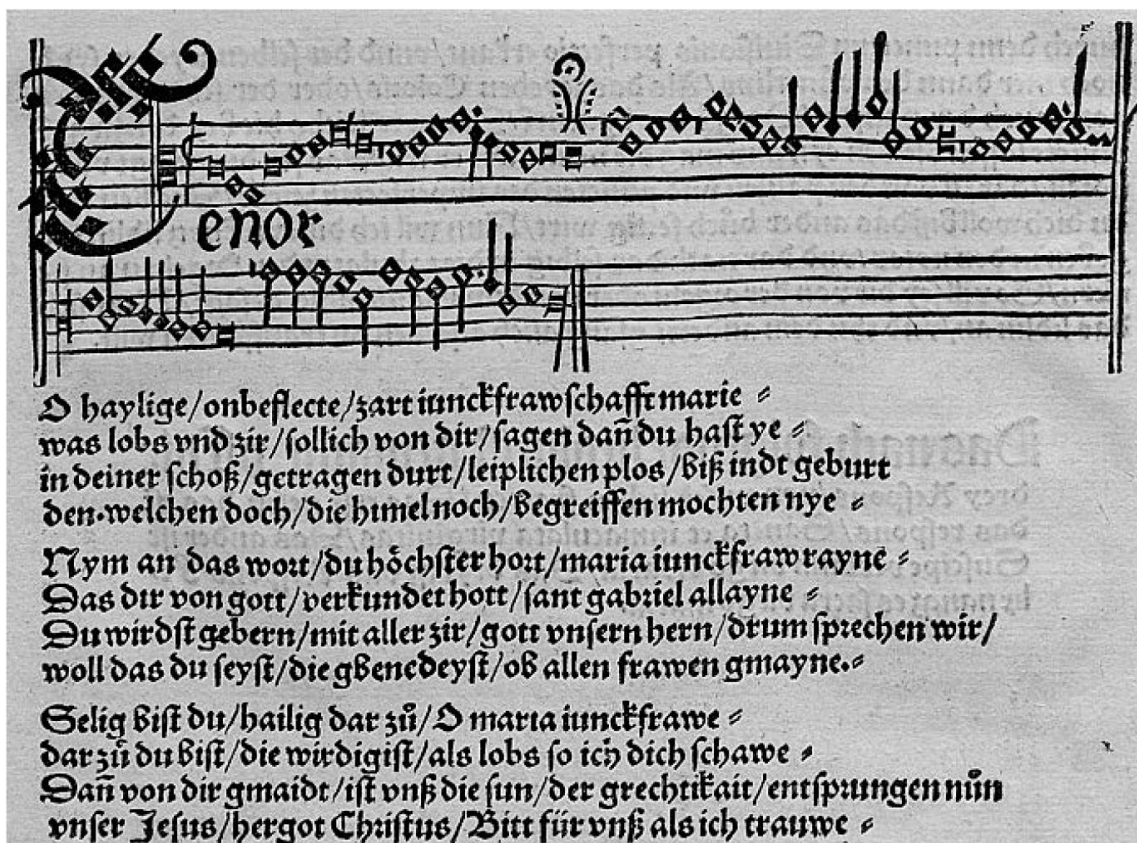 Tenor
O haylige/onbeflecte/zart iunckfrawschafft marie ⸗
was lobs vnd zir/sollich von dir/sagen dañ du hast ye ⸗
in deiner schoß/getragen durt/leiplichen plos/biß in dt geburt
den welchen doch/die himel noch/begreiffen mochten nye ⸗
Nym an das wort/du höchster hort/maria iunckfraw rayne ⸗
Das dir von gott/verkundet hott/sant gabriel allayne ⸗
Du wirdst gebern/mit aller zir/gott vnsern hern/drum sprechen wir/
woll das du seyst/die gbenedeyst/ob allen frawen gmayne.⸗
Selig bist du/hailig dar zů/O maria iunckfrawe ⸗
dar zů du bist/die wirdigist/als lobs so ich dich schawe ⸗
Dañ von dir gmaidt/ist vnß die sun/der grechtikait/entsprungen nůn
vnser Jesus/hergot Christus/Bitt für vnß als ich trauwe ⸗